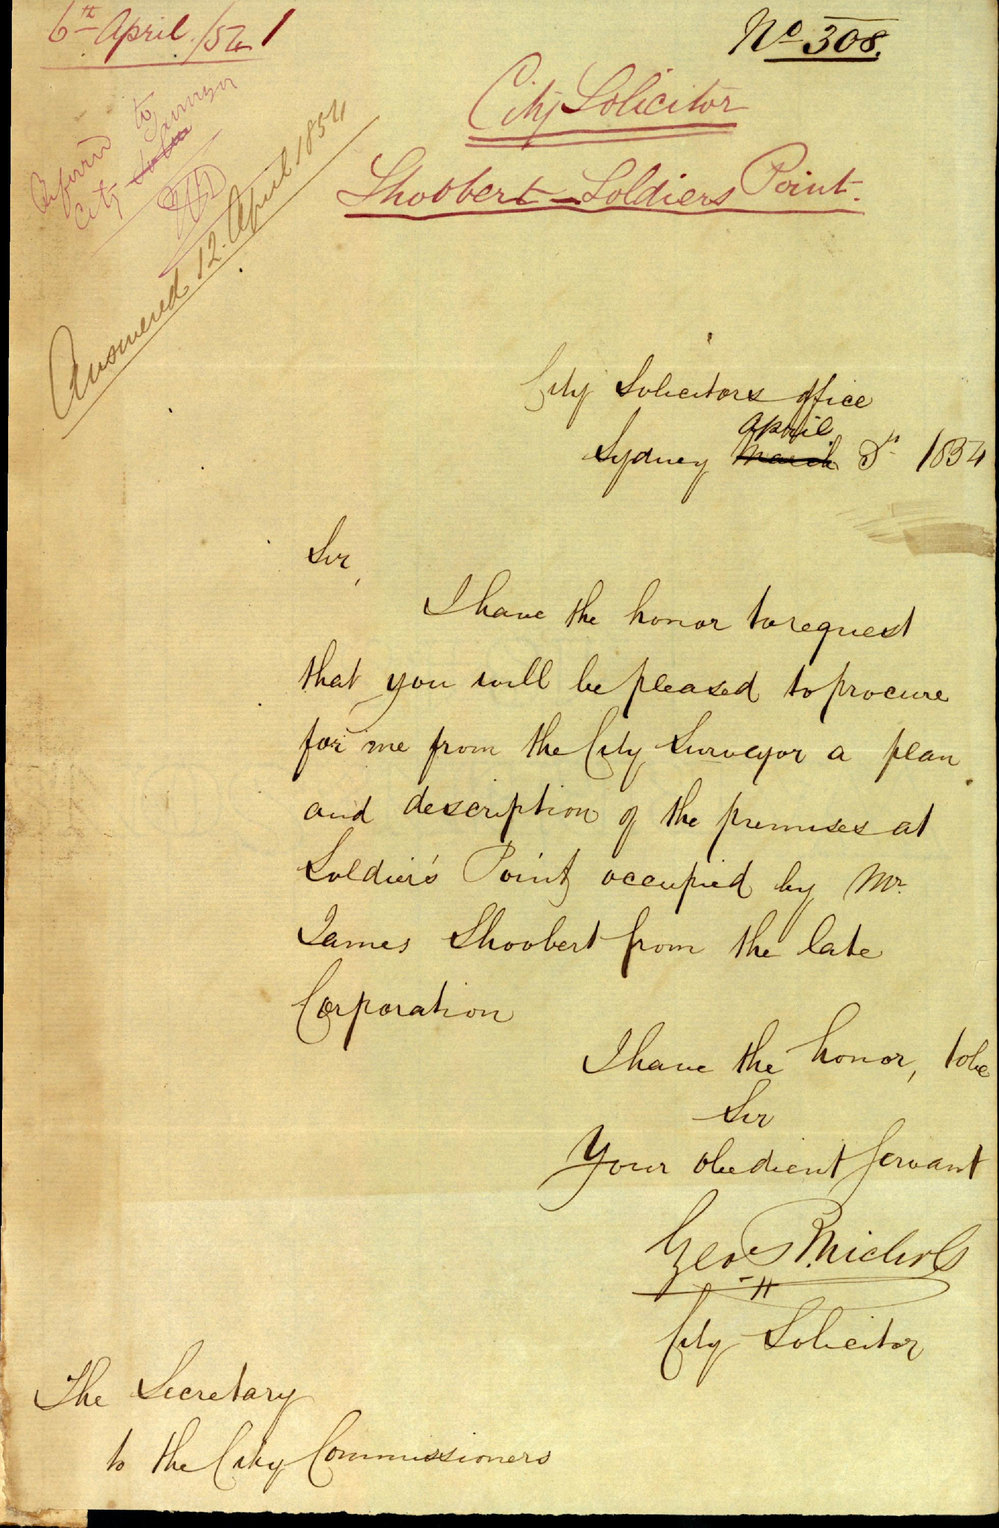 6th April /54 1
No 308.
City Solicitor
Shoobert - Soldiers Point.
Referred to
City Surveyor
Answered 12 April 1854
City Solicitors office
April
Sydney March 3d 1854
Sir,
I have the honor to request
that you will be pleased to procure
for me from the City Surveyor a plan
and description of the premises at
Soldier's Point occupied by Mr.
James Shoobert from the late
Corporation
I have the honor, to be
Sir
Your obedient Servant
Geo R Nichols
City Solicitor
The Secretary
to the City Commissioners